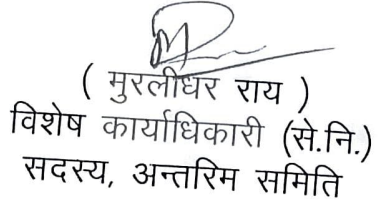 ( मुरलीधर राय )
विशेष कार्याधिकारी (से.नि.)
सदस्य, अन्तरिम समिति